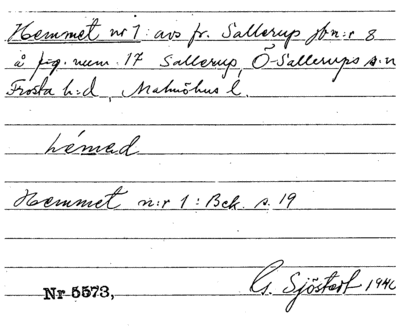 Hemmet nr 1: avs fr. Sallerup jbn:r 8
å fig. num. 17 Sallerup, Ö-Sallerups s:n
Frosta h:d, Malmöhus l.
hémad
Hemmet n:r 1: Bek. s. 19
Nr 5573, G. Sjöstedt 1940